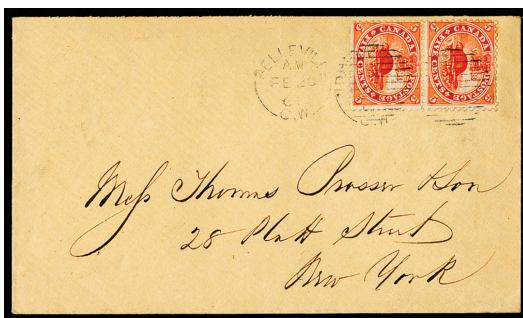 BELLEVILLE
AM
FE 26
61
C.W.
CANADA
POSTAGE
FIVE CENTS
5
5
CANADA
POSTAGE
FIVE CENTS
5
5
C.W.
Mess Thomas Prosser & Son
28 Platt Street
New York